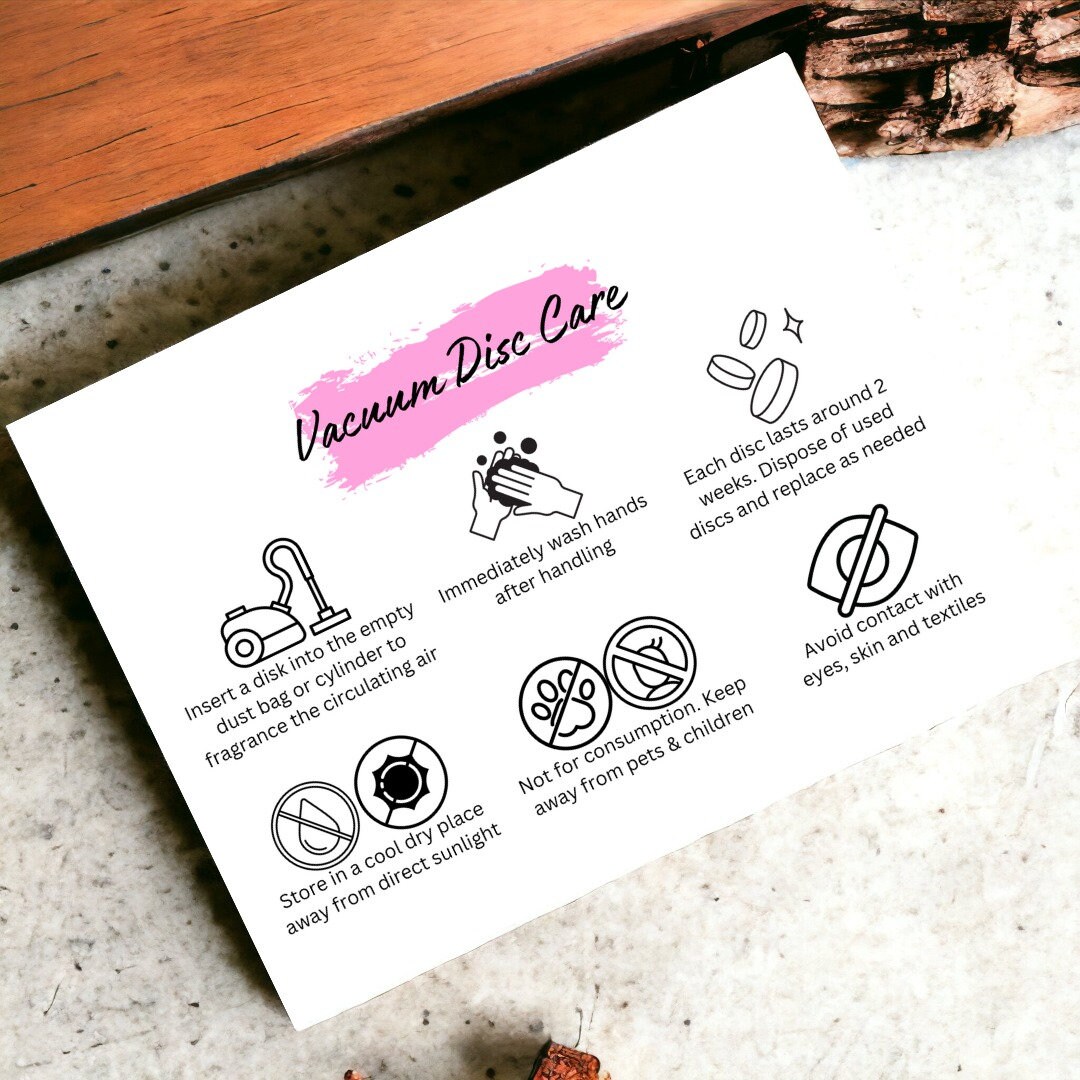 Vacuum Disc Care
Insert a disk into the empty
dust bag or cylinder to
fragrance the circulating air
Immediately wash hands
after handling
Each disc lasts around 2
weeks. Dispose of used
discs and replace as needed
Store in a cool dry place
away from direct sunlight
Not for consumption. Keep
away from pets & children
Avoid contact with
eyes, skin and textiles